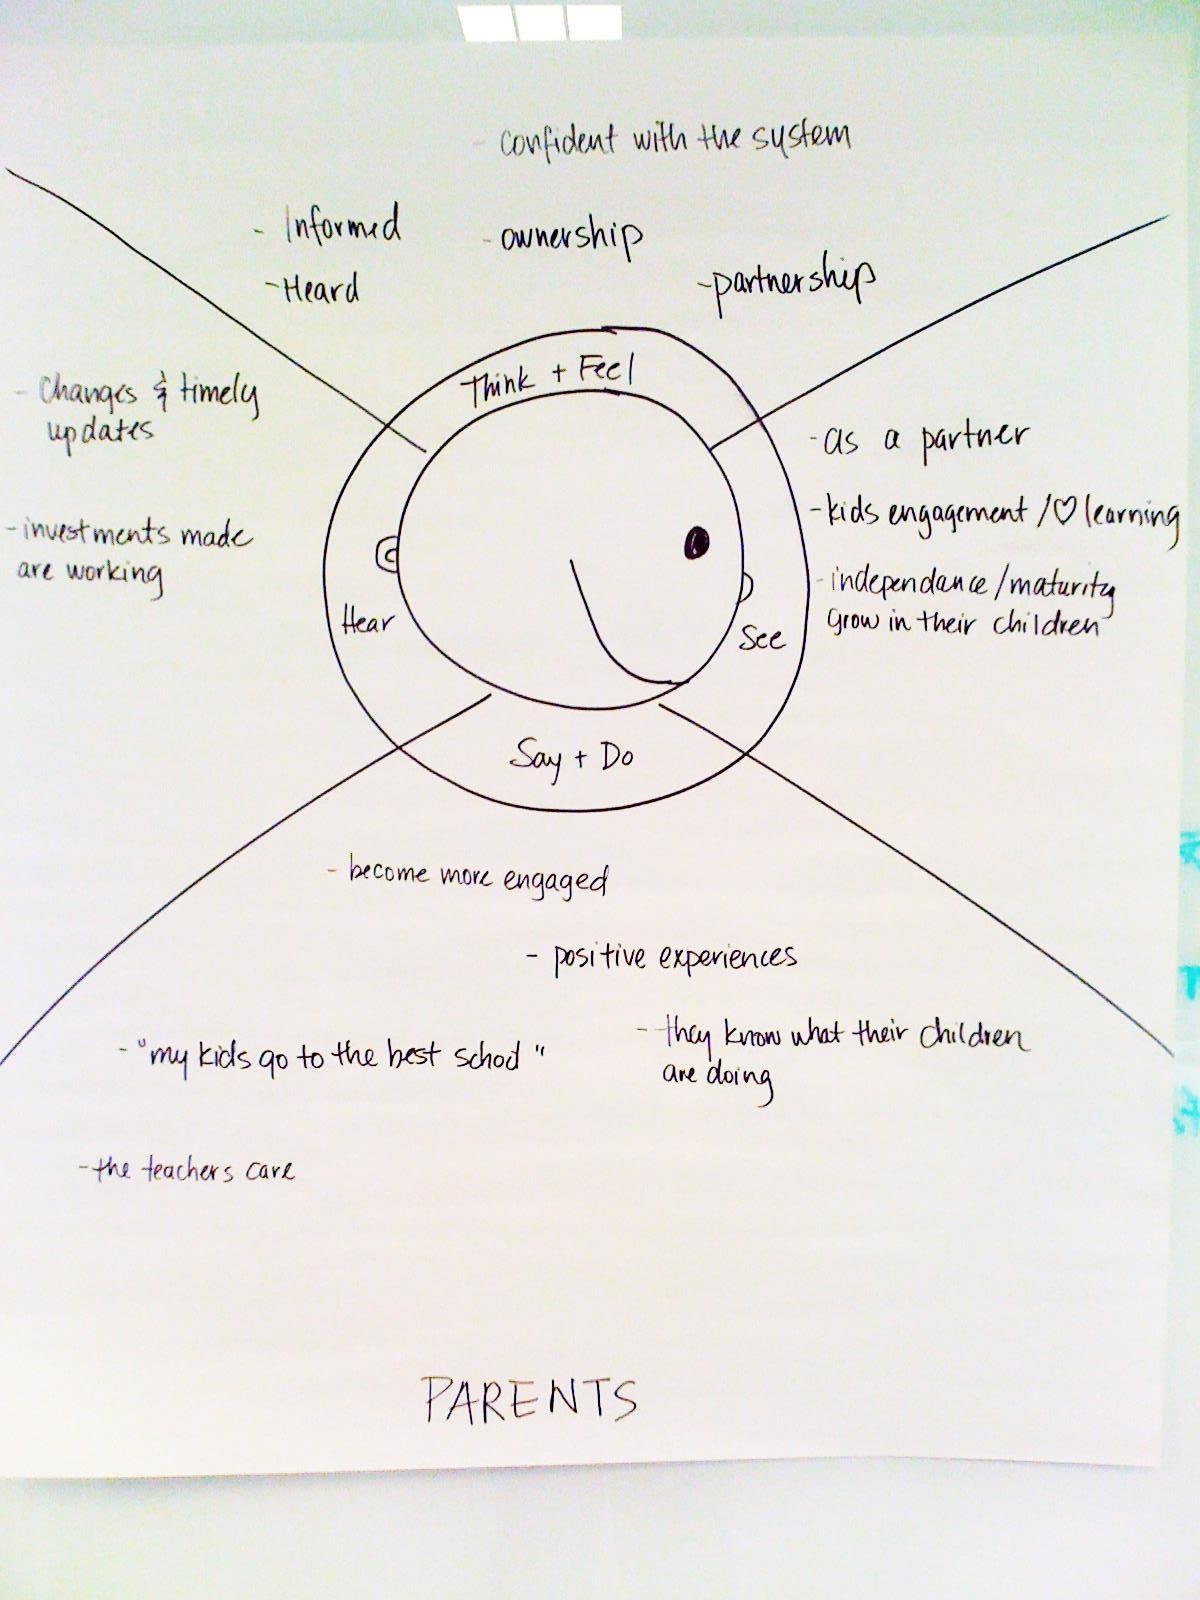 - confident with the system
- Informed
- ownership
- Heard
- partnership
Think + Feel
- Changes & timely
updates
- investments made
are working
Hear
- as a partner
- kids engagement / ♡ learning
- independance / maturity
grow in their children
See
Say + Do
- become more engaged
- positive experiences
- "my kids go to the best school"
- they know what their children
are doing
- the teachers care
PARENTS